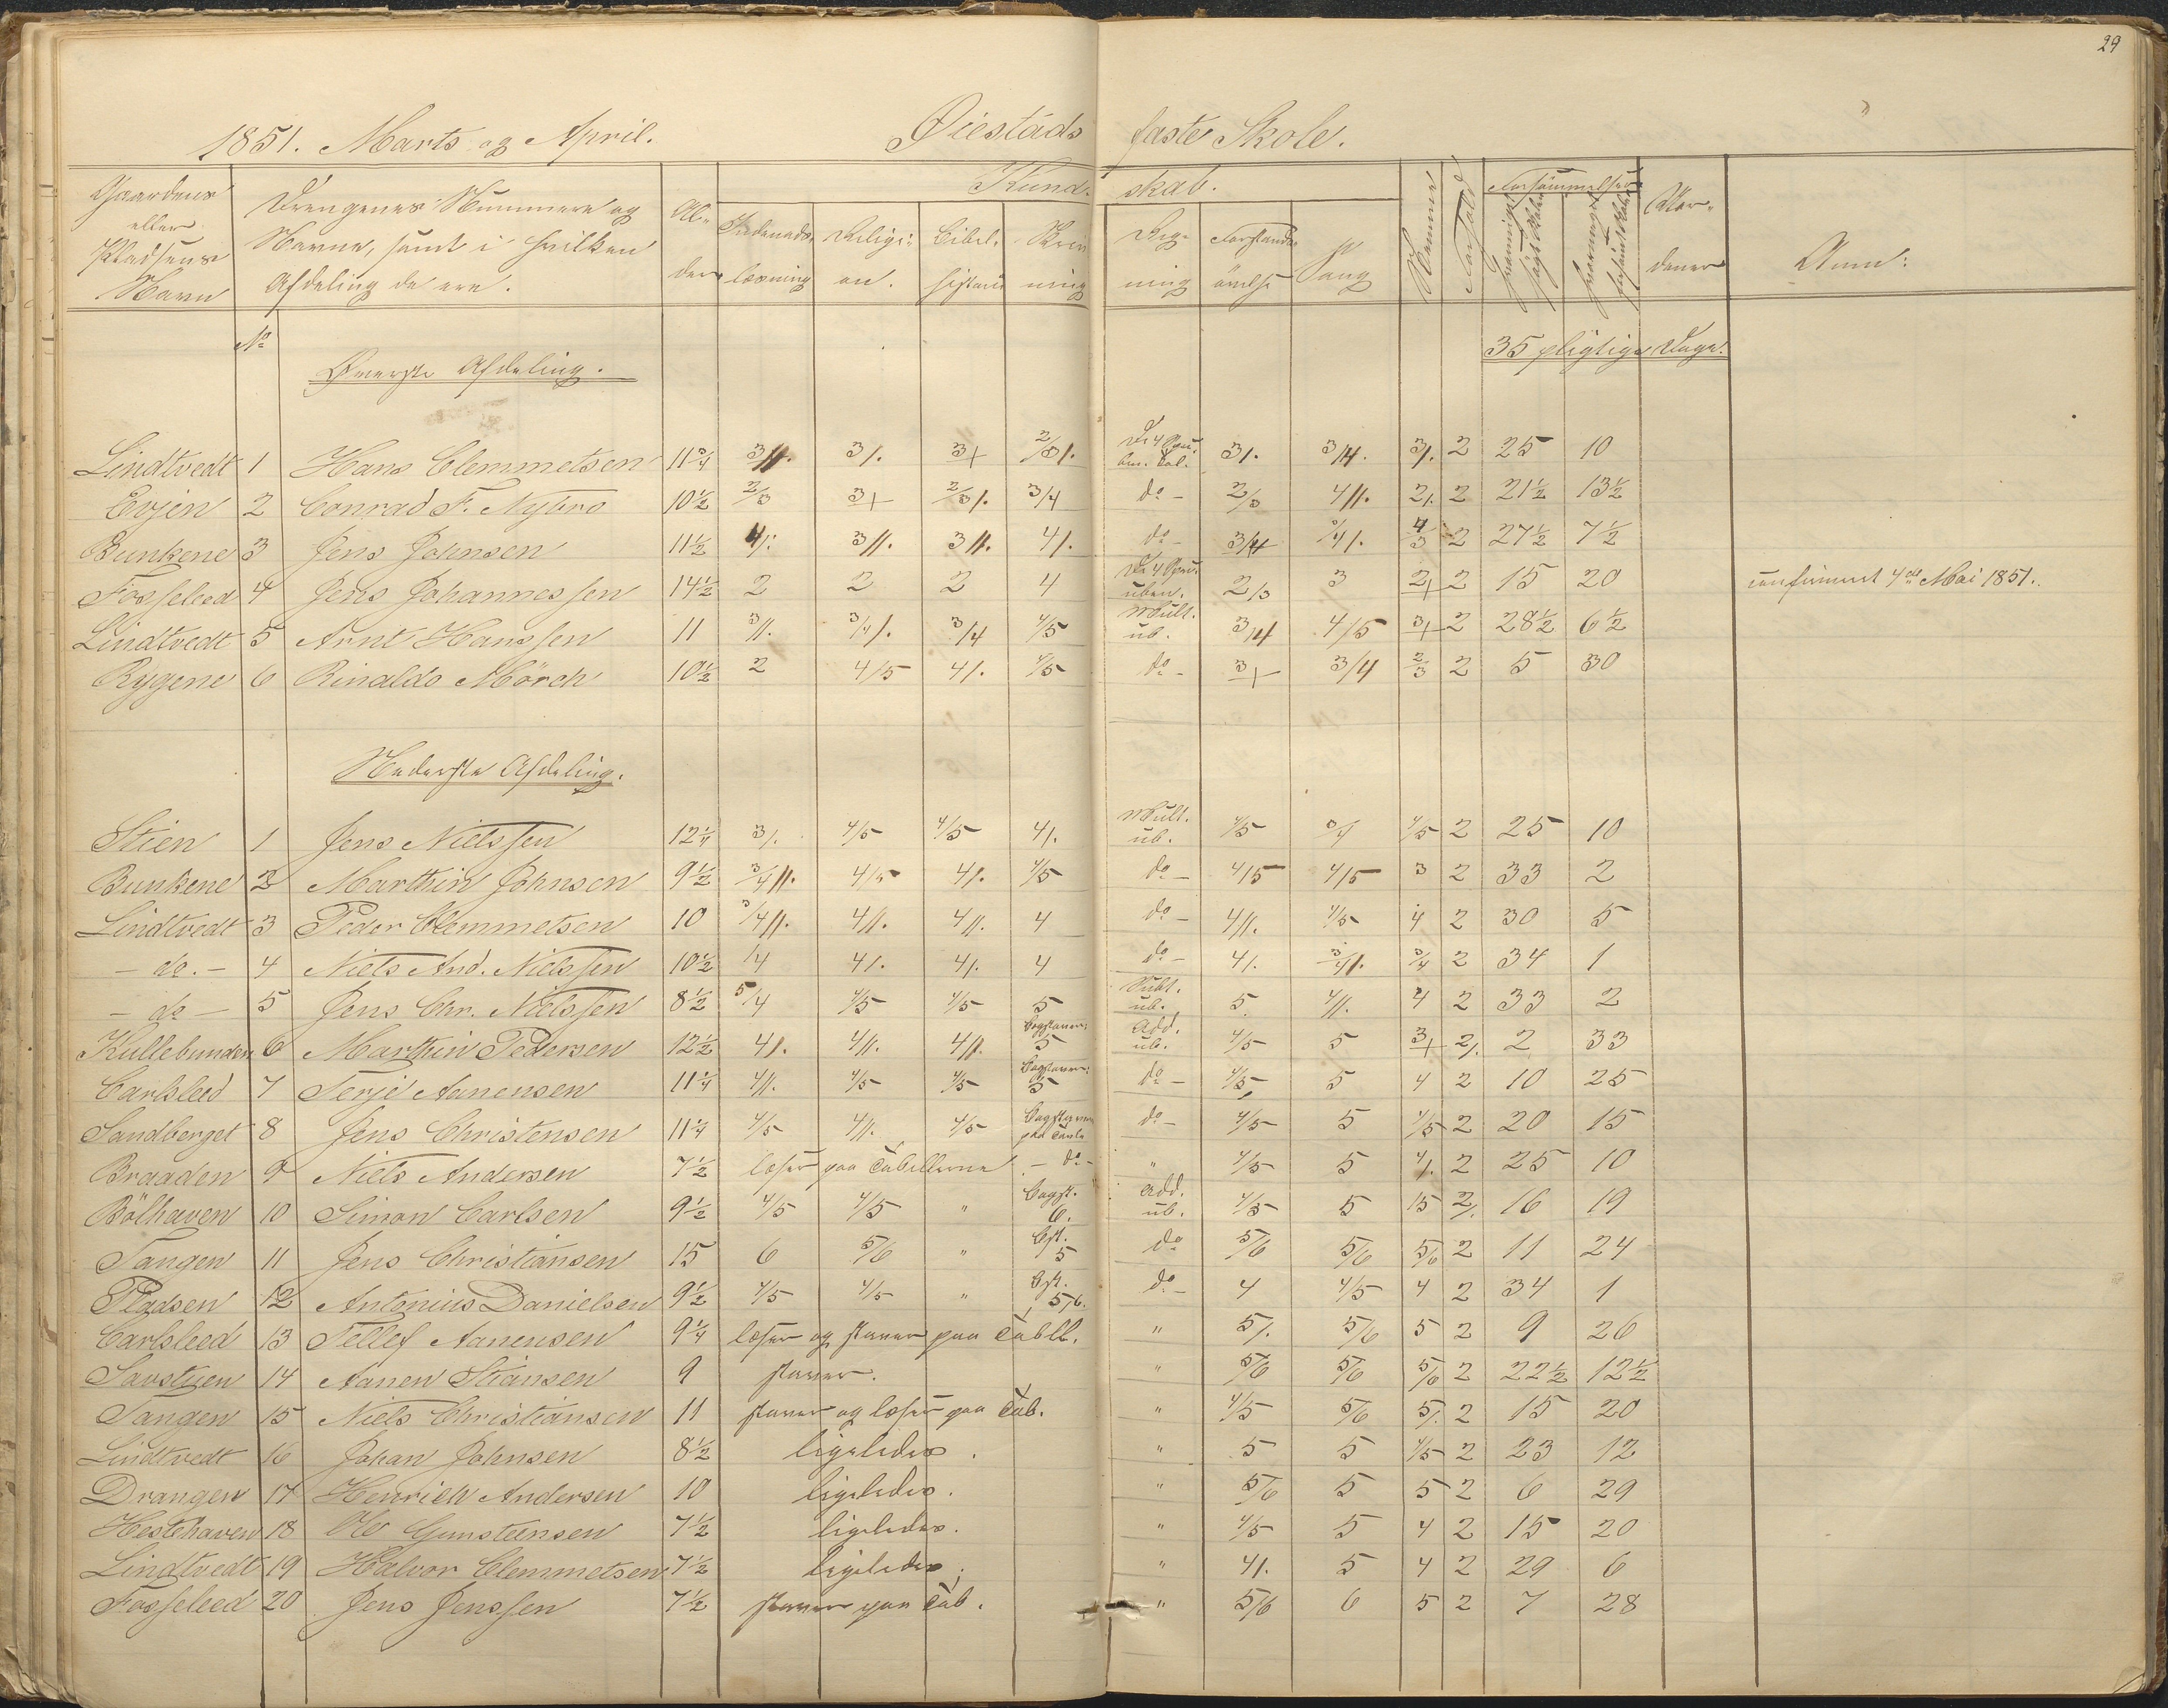 29
1851. Marts og April. Øiestads faste Skole.
Gaardens eller Pladsens Navn | Drengenes Nummere og Navne, samt i hvilken Afdeling de ere. | Alder | Indenadslæsning | Religion. | Bibelhistorie | Skrivning | Kundskab. | Regning | Forstandsøvelse | Sang | Nemme | Forhold | Forsømmelser | Anm:
No
Øverste Afdeling. 35 pligtige Dage.
Lindtvedt 1 Hans Clemmetsen 11¾ 3//. 3/. 3+ 2/3/. De 4 Spec. 3/. 3/4. 3/. 2 25 10
Evjen 2 Conrad F. Nybro 10½ 2/3 3+ 2/3/. 3/4 do - 2/3 4//. 2/. 2 21½ 13½
Bunkene 3 Jens Johnsen 11½ 4/. 3//. 3//. 4/. do - 3/4 3/4/. 4/3 2 27½ 7½
Fosseleed 4 Jens Johannessen 14½ 2 2 2 4 De 4 Spec. uben. 2/3 3 2+ 2 15 20 confirmeret 4de Mai 1851.
Lindtvedt 5 Arnt Hanssen 11 3//. 3/4/. 3/4 4/5 Mult. ub. 3/4 4/5 3+ 2 28½ 6½
Rygene 6 Rinaldo Mörch 10½ 2 4/5 4/. 4/5 do - 3+ 3/4 2/3 2 5 30
Nederste Afdeling.
Stien 1 Jens Nielssen 12¼ 3/. 4/5 4/5 4/. Mult. ub. 4/5 3/4 4/5 2 25 10
Bunkene 2 Marthin Johnsen 9½ 3/4//. 4/5 4/. 4/5 do - 4/5 4/5 3 2 33 2
Lindtvedt 3 Peder Clemmetsen 10 3/4//. 4//. 4//. 4 do - 4//. 4/5 4 2 30 5
- do. - 4 Niels And. Nielssen 10½ 4 4/. 4/. 4 do - 4/. 3/4/. 3/4 2 34 1
- do - 5 Jens Chr. Nielssen 8½ 5/4 4/5 4/5 5 Subt. ub. 5. 4//. 4 2 33 2
Kullebunden 6 Marthin Pedersen 12½ 4/. 4//. 4//. Bogstaver: 5 Add. ub. 4/5 5 3+ 2/. 2 33
Carlsleed 7 Terje Aanensen 11¼ 4//. 4/5 4/5 Bogstaver: 5 do - 4/5 5 4 2 10 25
Sandberget 8 Jens Christensen 11¼ 4/5 4//. 4/5 Bogstaver paa Tavle do - 4/5 5 4/5 2 20 15
Braaden 9 Niels Andersen 7½ læser paa Tabellerne - do - " 4/5 5 4/. 2 25 10
Bölhaven 10 Simon Carlsen 9½ 4/5 4/5 " Bogst. 6. Add. ub. 4/5 5 15 2/. 16 19
Tangen 11 Jens Christiansen 15 6 5/6 " Bst. 5 do 5/6 5/6 5/6 2 11 24
Pladsen 12 Antonius Danielsen 9½ 4/5 4/5 " Bst. 5/6. do - 4 4/5 4 2 34 1
Carlsleed 13 Tellef Aanensen 9¼ læser og staver paa Tabll. " 5/. 5/6 5 2 9 26
Savstuen 14 Aanen Stiansen 9 staver. " 5/6 5/6 5/6 2 22½ 12½
Tangen 15 Niels Christiansen 11 staver og læser paa Tab. " 4/5 5/6 5/. 2 15 20
Lindtvedt 16 Johan Johnsen 8½ ligeledes. " 5 5 4/5 2 23 12
Drangen 17 Henrich Andersen 10 ligeledes. " 5/6 5 5 2 6 29
Hestehaven 18 Ole Gunsteensen 7½ ligeledes. " 4/5 5 4 2 15 20
Lindtvedt 19 Halvor Clemmetsen 7½ ligeledes. " 4/. 5 4 2 29 6
Fosseleed 20 Jens Jenssen 7½ staver paa Tab. " 5/6 6 5 2 7 28